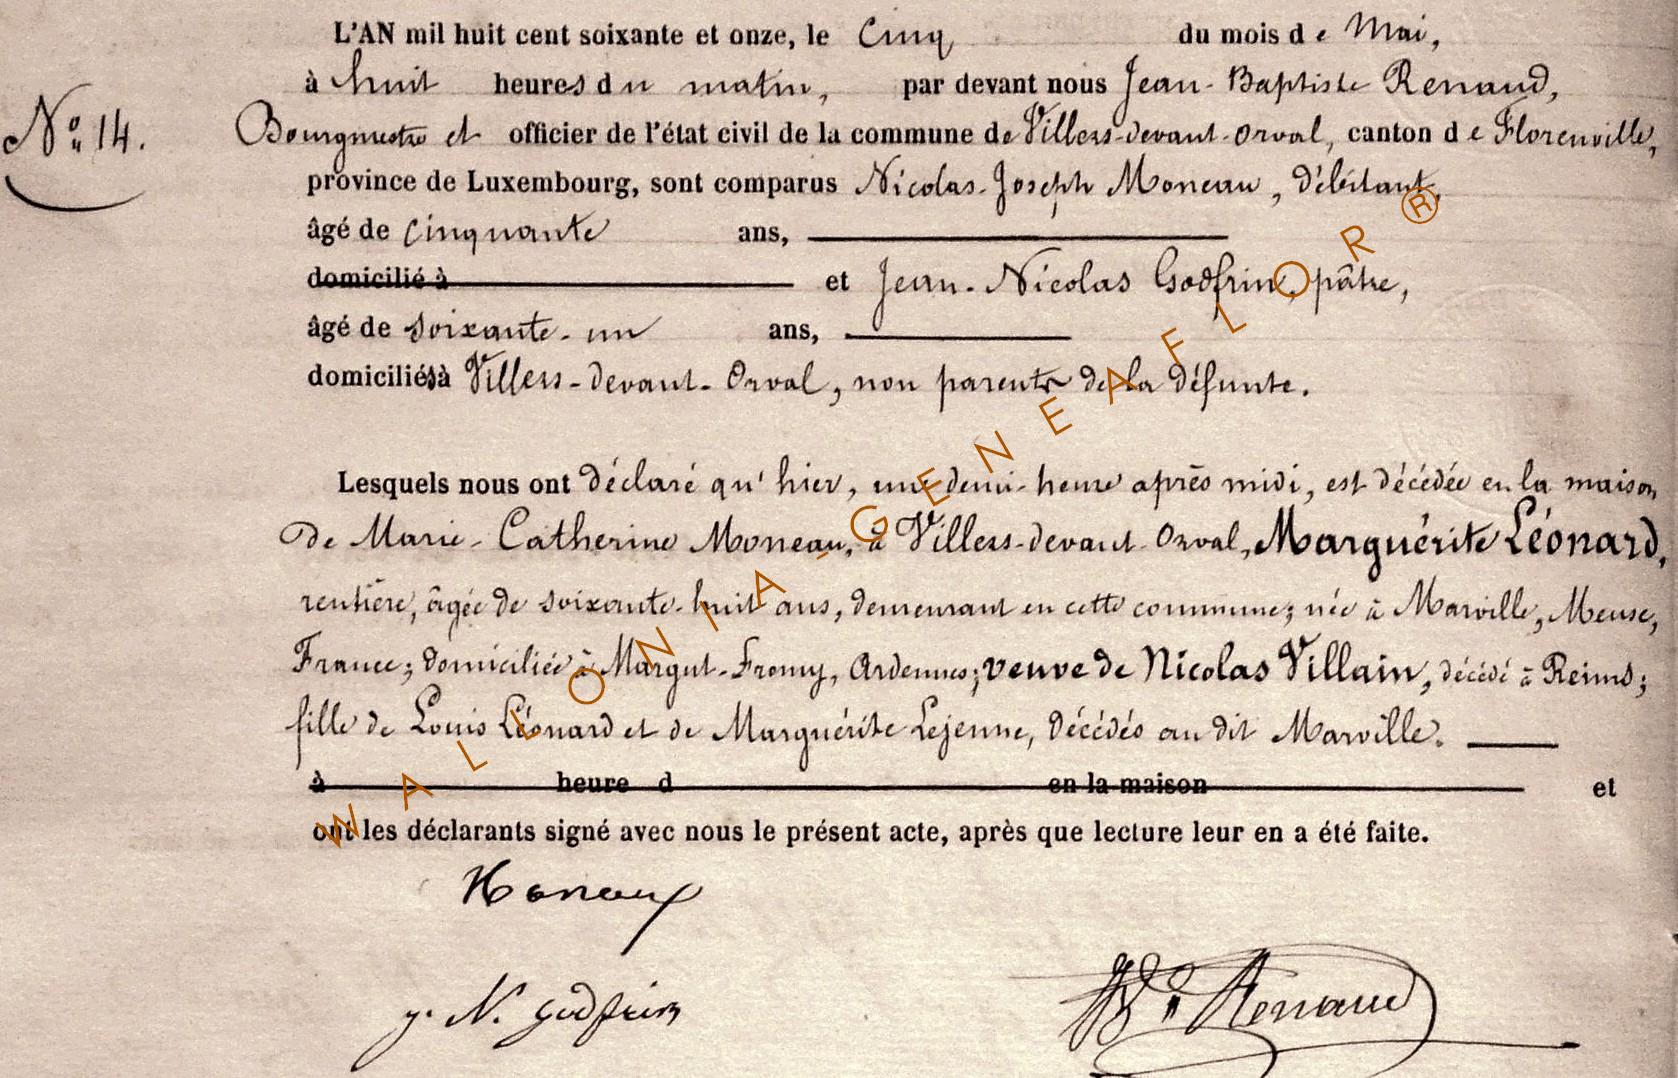 L'AN mil huit cent soixante et onze, le Cinq du mois de Mai,
à huit heures du matin, par devant nous Jean-Baptiste Renaud,
N° 14. Bourgmestre et officier de l'état civil de la commune de Villers-devant-Orval, canton de Florenville,
province de Luxembourg, sont comparus Nicolas-Joseph Moneau, débitant,
âgé de cinquante ans,
domicilié à et Jean-Nicolas Godfrin, pâtre,
âgé de soixante-un ans,
domiciliés à Villers-devant-Orval, non parents de la défunte.
Lesquels nous ont déclaré qu'hier, une demi-heure après midi, est décédée en la maison
de Marie-Catherine Moneau, à Villers-devant-Orval, Marguérite Léonard,
rentière, âgée de soixante-huit ans, demeurant en cette commune; née à Marville, Meuse,
France; domiciliée à Margut-Fromy, Ardennes; veuve de Nicolas Villain, décédé à Reims;
fille de Louis Léonard et de Marguérite Lejeune, décédés au dit Marville.
à heure d en la maison et
ont les déclarants signé avec nous le présent acte, après que lecture leur en a été faite.
Moneau
J. N. Godfrin
Renaud
WALLONIA-GENEAFLOR®